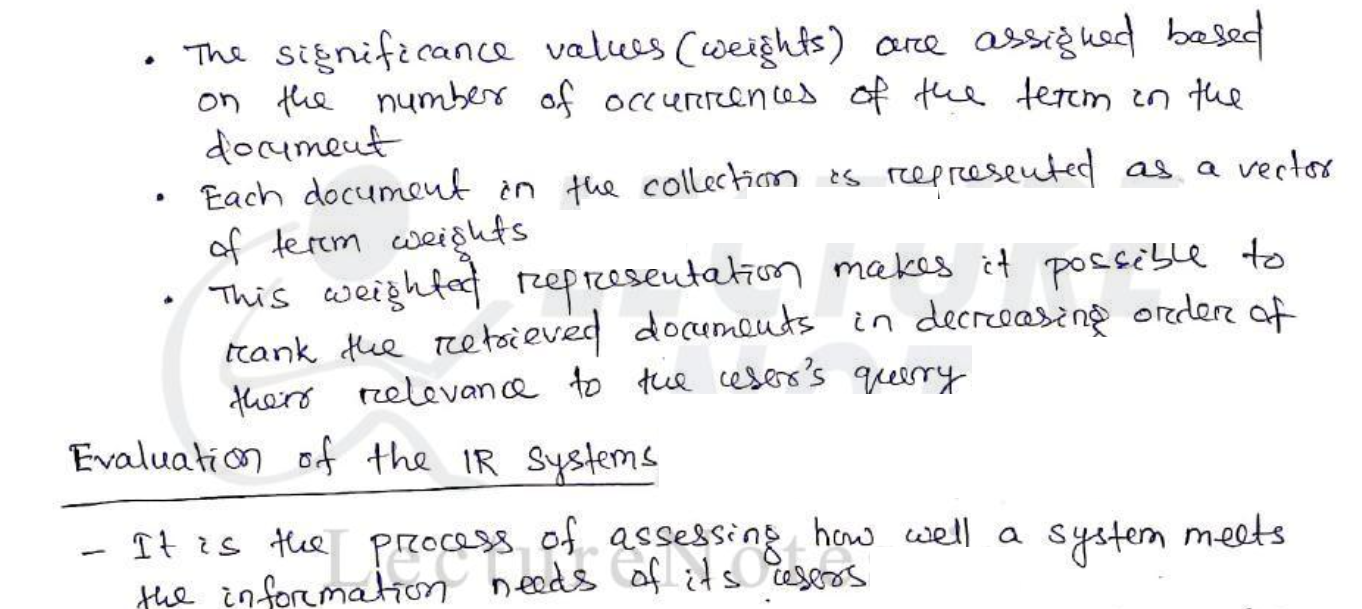 • The significance values (weights) are assigned based
on the number of occurrences of the term in the
document
• Each document in the collection is represented as a vector
of term weights
• This weighted representation makes it possible to
rank the retrieved documents in decreasing order of
their relevance to the user's query
Evaluation of the IR Systems
- It is the process of assessing how well a system meets
the information needs of its users
LECTURE
NOT
LectureNote